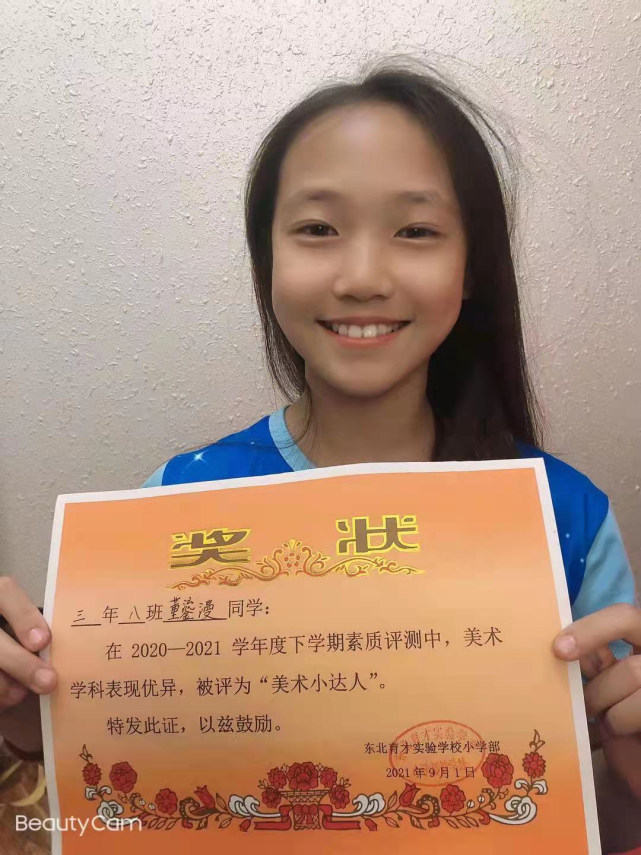 奖状
三年八班董鎏漫同学：
在 2020—2021 学年度下学期素质评测中，美术
学科表现优异，被评为“美术小达人”。
特发此证，以兹鼓励。
东北育才实验学校小学部
2021年9月1日
BeautyCam